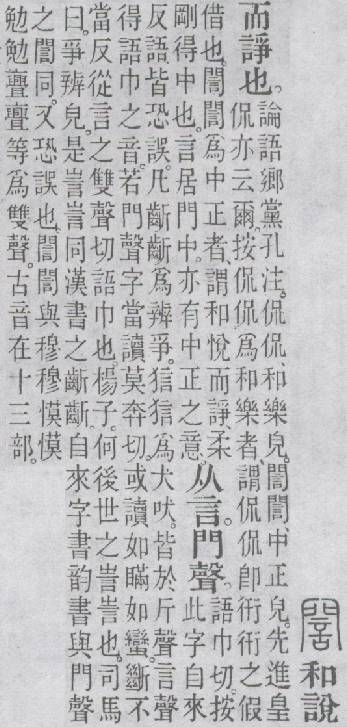 誾和說
而諍也。
論語鄉黨孔注。侃侃、和樂皃。誾誾、中正皃。先進皇
侃亦云爾。按侃侃爲和樂者、謂侃侃卽衎衎之假
借也。誾誾爲中正者、謂和悅而諍、柔
剛得中也。言居門中。亦有中正之意。
从言。門聲。
語巾切。按
此字自來
反語皆恐誤。凡齗齗爲辨爭。狺狺爲犬吠。皆於斤聲言聲
得語巾之音。若門聲字當讀莫奔切。或讀如瞞如蠻。斷不
當反從言之雙聲切語巾也。楊子。何後世之訔訔也。司馬
曰。爭辨皃。是訔訔同漢書之齗齗。自來字書韵書與門聲
之誾同。又恐誤也。誾誾與穆穆慔慔
勉勉亹亹等爲雙聲。古音在十三部。